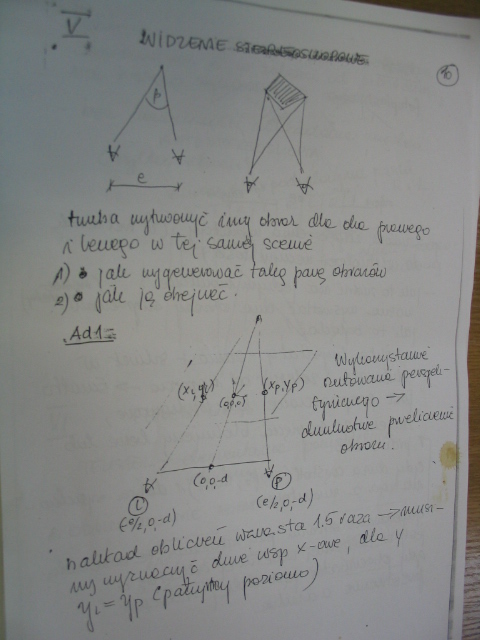 V
WIDZENIE STEREOSKOPOWE
10
p
e
trzeba wytworzyć inny obraz dla oka prawego
i lewego w tej samej scenie
1) jak wygenerować taką parę obrazów
2) jak ją obejrzeć.
Ad1=
A
Wykorzystanie
rzutowania perspek-
tywicznego →
dwukrotne przeliczenie
obrazu.
(xL, yL)
(0,0,0)
(xp, yp)
(0,0,-d
L
P
(-e/2,0,-d)
(e/2,0,-d)
nakład obliczeń wzrasta 1.5 raza → musi-
my wyznaczyć dwie wsp x-owe, dla y
yL = yp (patrzymy poziomo)